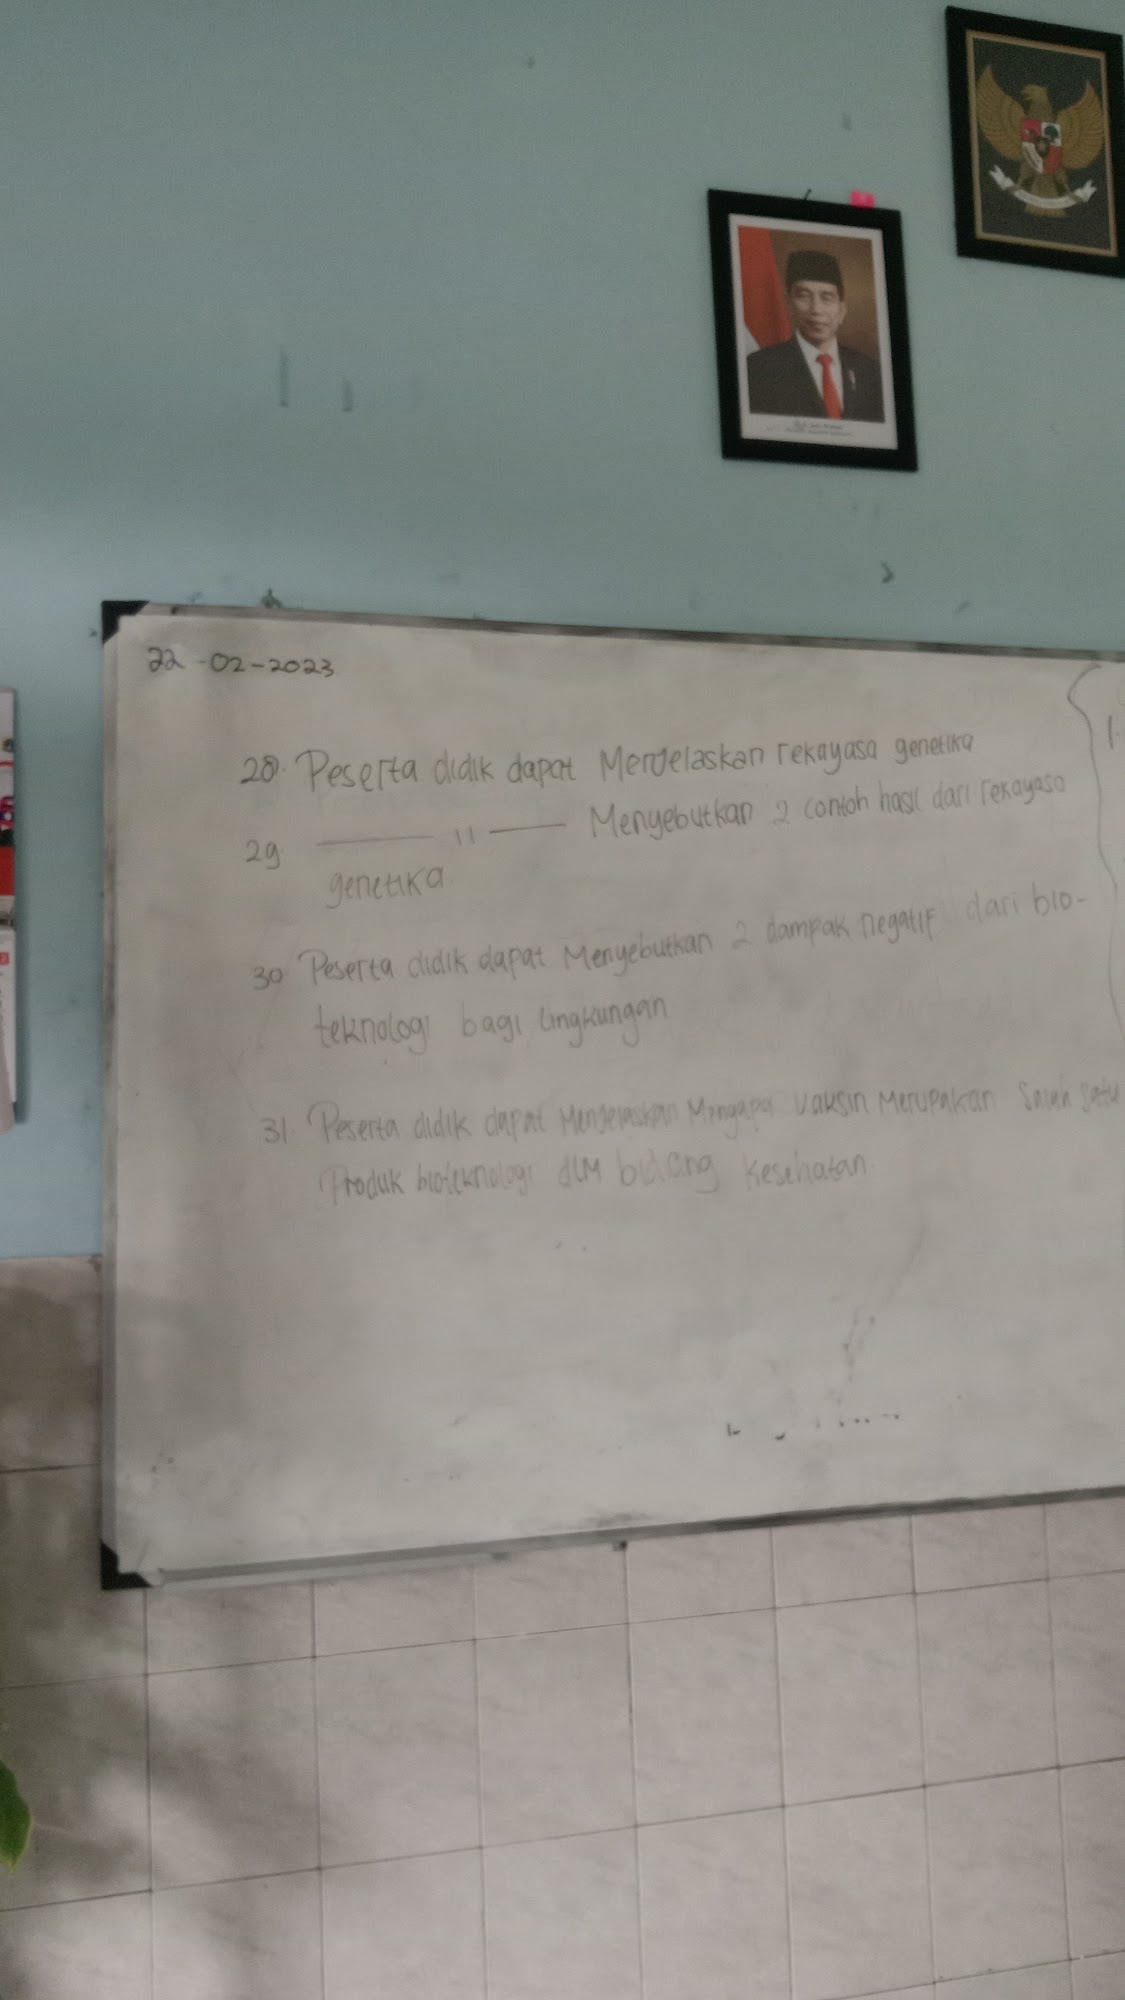 22-02-2023
28. Peserta didik dapat Menjelaskan rekayasa genetika
29 —— 11 —— Menyebutkan 2 contoh hasil dari rekayasa
genetika.
30. Peserta didik dapat Menyebutkan 2 dampak negatif dari bio-
teknologi bagi lingkungan
31. Peserta didik dapat Menjelaskan Mengapa vaksin Merupakan Salah satu
Produk bioteknologi dlm bidang Kesehatan.
1.